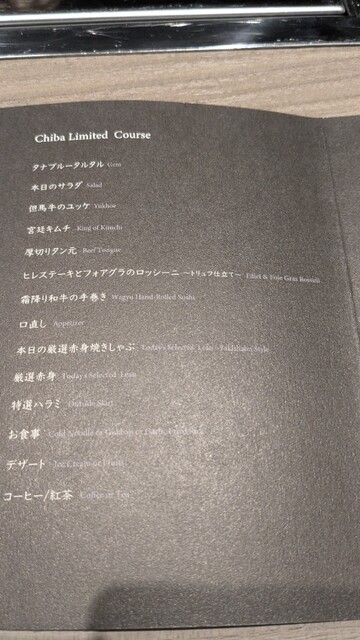 Chiba Limited Course
タナブルータルタル
本日のサラダ Salad
但馬牛のユッケ Yukhoe
宮廷キムチ King of Kimchi
厚切りタン元 Beef Tongue
ヒレステーキとフォアグラのロッシーニ ートリュフ仕立てー Fillet & Foie Gras Rossini
霜降り和牛の手巻き Wagyu Hand-Rolled Sushi
口直し Appetizer
本日の厳選赤身焼きしゃぶ Today's Selected Lean
厳選赤身 Today's Selected Lean
特選ハラミ Outside Skirt
お食事 Cold Noodle or
デザート Ice Cream or Fruits
コーヒー/紅茶 Coffee or Tea